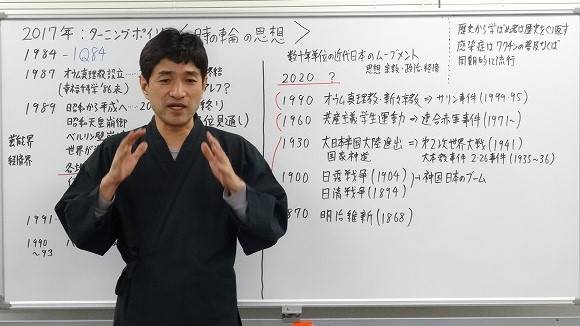 2017年：ターニングポイント＜時の輪の思想＞
1984 - 1Q84
1987 オウム真理教設立
（幸福の科学 '86末）
1989 昭和から平成へ
昭和天皇崩御
ベルリン壁
世界が
芸能界
経済界
1991
1990
～93
数十年単位の近代日本のムーブメント
思想・宗教・政治・経済
2020 ？
1990 オウム真理教・新々宗教 ⇒ サリン事件(1994-95)
1960 共産主義学生運動 ⇒ 連合赤軍事件(1971～)
1930 大日本帝国大陸進出 ⇒ 第2次世界大戦(1941)
国家神道 大本教事件 2・26事件(1935～36)
1900 日露戦争(1904) → 神国日本のブーム
日清戦争(1894)
1870 明治維新(1868)
歴史から学ばぬ者は歴史をくり返す
感染症はワクチンの普及なくば
周期的に流行